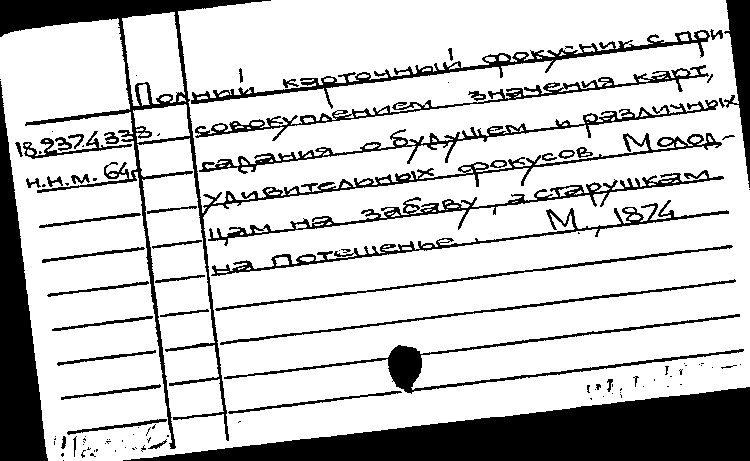 Полный карточный фокусник с при-
18.237.4.333. совокуплением значения карт,
н.н.м. 64г. гадания о будущем и различных
удивительных фокусов. Молод-
цам на забаву, а старушкам
на потешенье. М., 1874